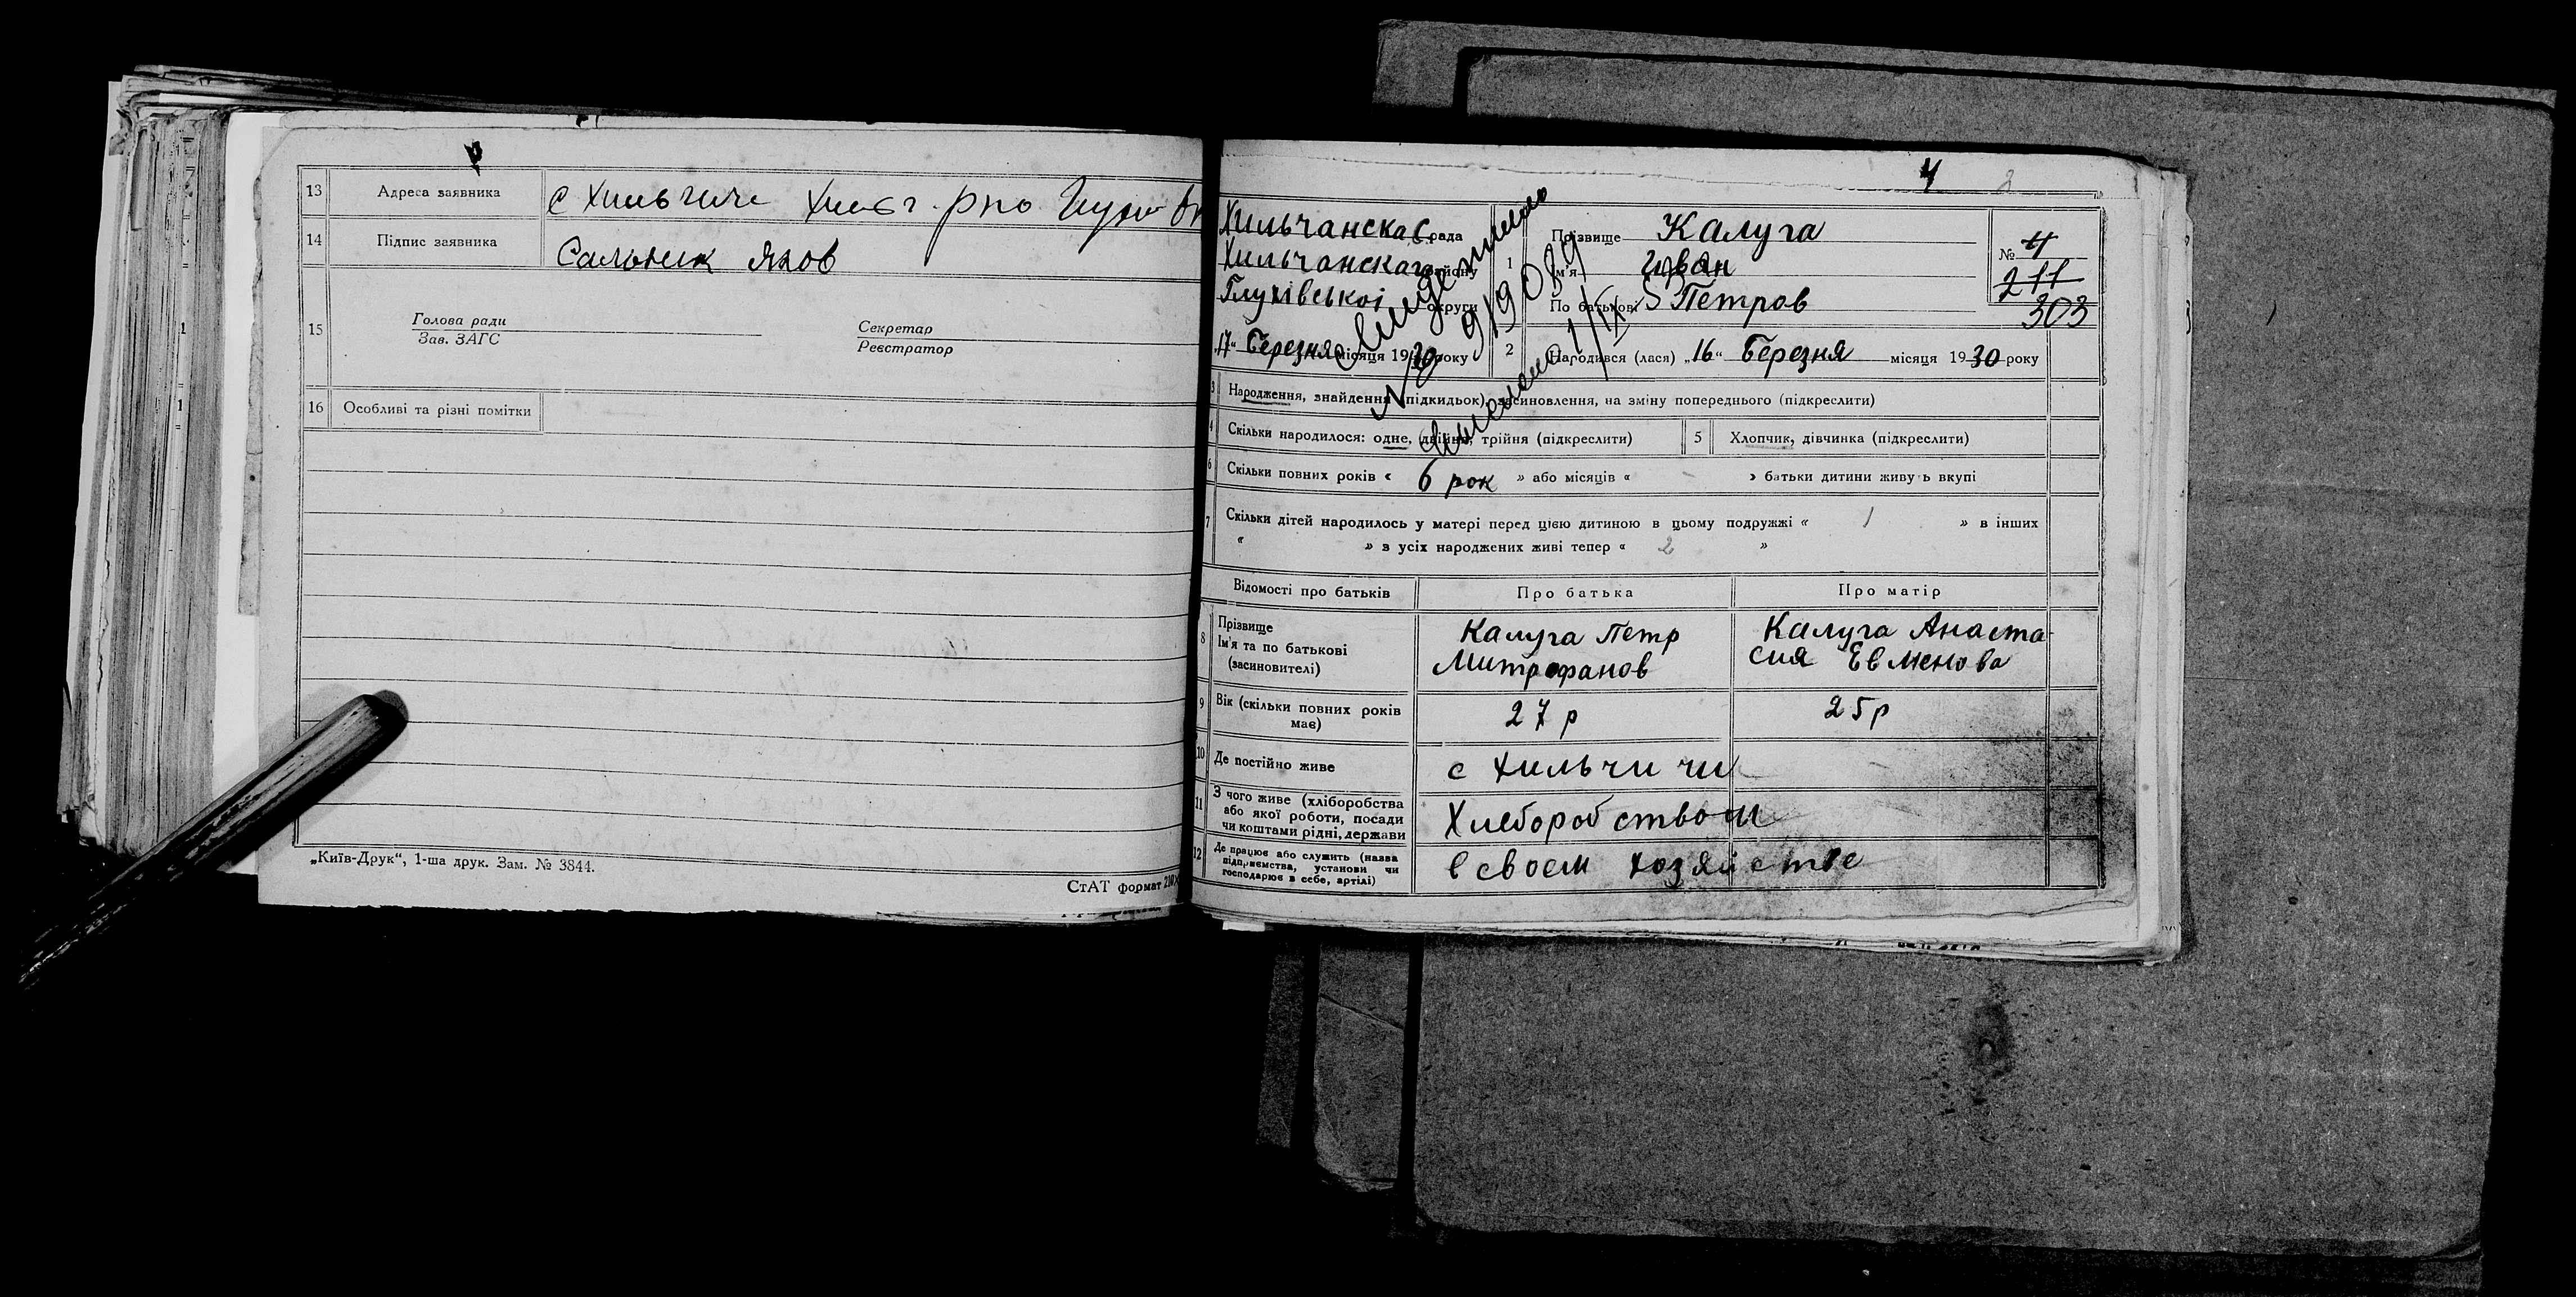 13 Адреса заявника с Хильчичи
14 Підпис заявника Сальник Яков
15 Голова ради Секретар
Зав. ЗАГС Реєстратор
16 Особливі та різні помітки
„Київ-Друк“, 1-ша друк. Зам. № 3844.
СтАТ формат
4 2
Хильчанская с. рада
Хильчанскаго району
Глухівської округи
„17“ Березня місяця 1930 року
1 Прізвище Калуга
Ім'я Иван
По батькові Петров
№ 4
211
303
2 Народився (лася) „16“ Березня місяця 1930 року
Свидетельство
№ 919089
1/IX
3 Народження, знайдення (підкидьок), засиновлення, на зміну попереднього (підкреслити)
4 Скільки народилося: одне, двійня, трійня (підкреслити) 5 Хлопчик, дівчинка (підкреслити)
6 Скільки повних років « 6 рок » або місяців « – » батьки дитини живуть вкупі
7 Скільки дітей народилось у матері перед цією дитиною в цьому подружжі « 1 » в інших
« » з усіх народжених живі тепер « 2 »
Відомості про батьків Про батька Про матір
8 Прізвище Ім'я та по батькові (засиновителі) Калуга Петр Митрофанов Калуга Анастасия Евменова
9 Вік (скільки повних років має) 27 р 25 р
10 Де постійно живе с Хильчичи
11 З чого живе (хліборобства або якої роботи, посади чи коштами рідні, держави Хлеборобством
12 Де працює або служить (назва підприємства, установи чи господарює в себе, артілі) в своем хозяйстве